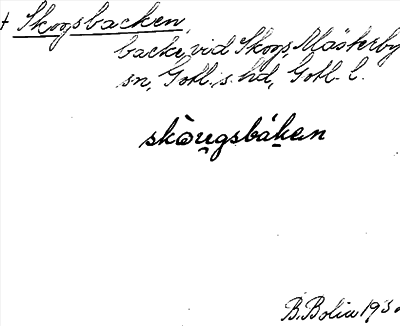 + Skogsbacken,
backe vid Skogs, Mästerby
sn, Gotl. s. hd, Gotl. l.
skòu̯gsbáken
B. Bolin 193